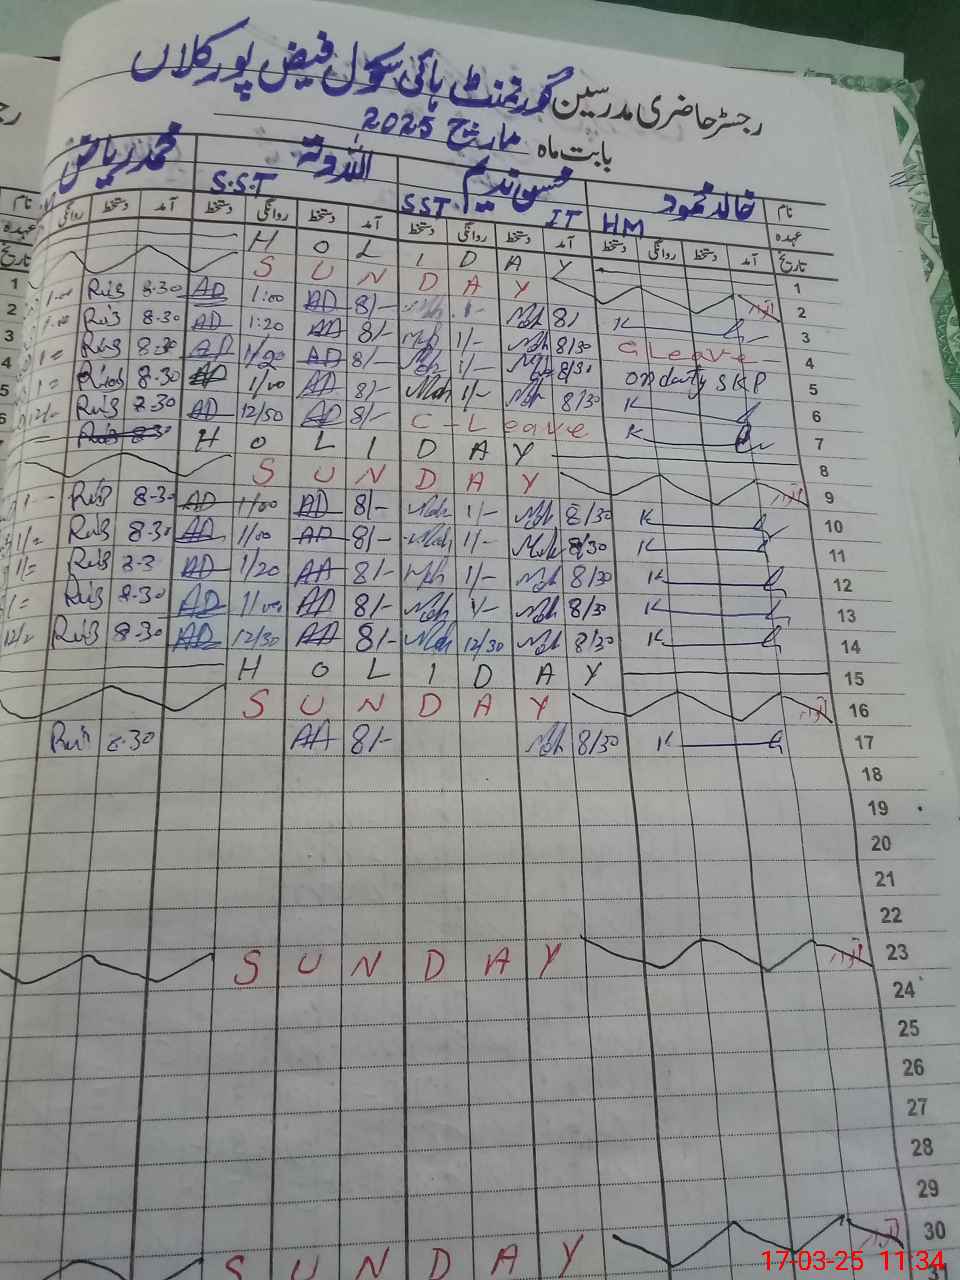 رجسٹر حاضری مدرسین گورنمنٹ ہائی سکول فیض پور کلاں
بابت ماہ مارچ 2025
نام خالد محمود محسن ندیم اللہ دتہ محمد ریاض
عہدہ HM SST IT S.S.T
تاریخ آمد دستخط روانگی دستخط آمد دستخط روانگی دستخط آمد دستخط روانگی دستخط آمد دستخط روانگی
1 H O L I D A Y
2 S U N D A Y اتوار
3 K 8/ 1/- 8/- AD 1:00 AD 8.30 Riaz 1.00
4 C Leave 8/30 1/- 8/- AD 1:20 AD 8.30 Riaz 1.00
5 on duty SKP 8/30 1/- 8/- AD 1/20 AD 8.30 Riaz 1=
6 K 8/30 1/- 8/- AD 1/00 AD 8.30 Riaz 1=
7 K C-Leave 8/- AD 12/50 AD 8.30 Riaz
8 H O L I D A Y
9 S U N D A Y اتوار
10 K 8/30 1/- 8/- AD 1/00 AD 8.30 Riaz 1-
11 K 8/30 1/- 8/- AD 1/00 AD 8.30 Riaz 1/=
12 K 8/30 1/- 8/- AA 1/20 AD Riaz 1/=
13 K 8/30 1/- 8/- AD 1/00 AD 8.30 Riaz 1=
14 K 8/30 12/30 8/- AA 12/30 AD 8.30 Riaz
15 H O L I D A Y
16 S U N D A Y اتوار
17 K 8/30 8/- AA 8.30 Riaz
18
19
20
21
22
23 S U N D A Y اتوار
24
25
26
27
28
29
30 S U N D A Y اتوار
31
17-03-25 11:34